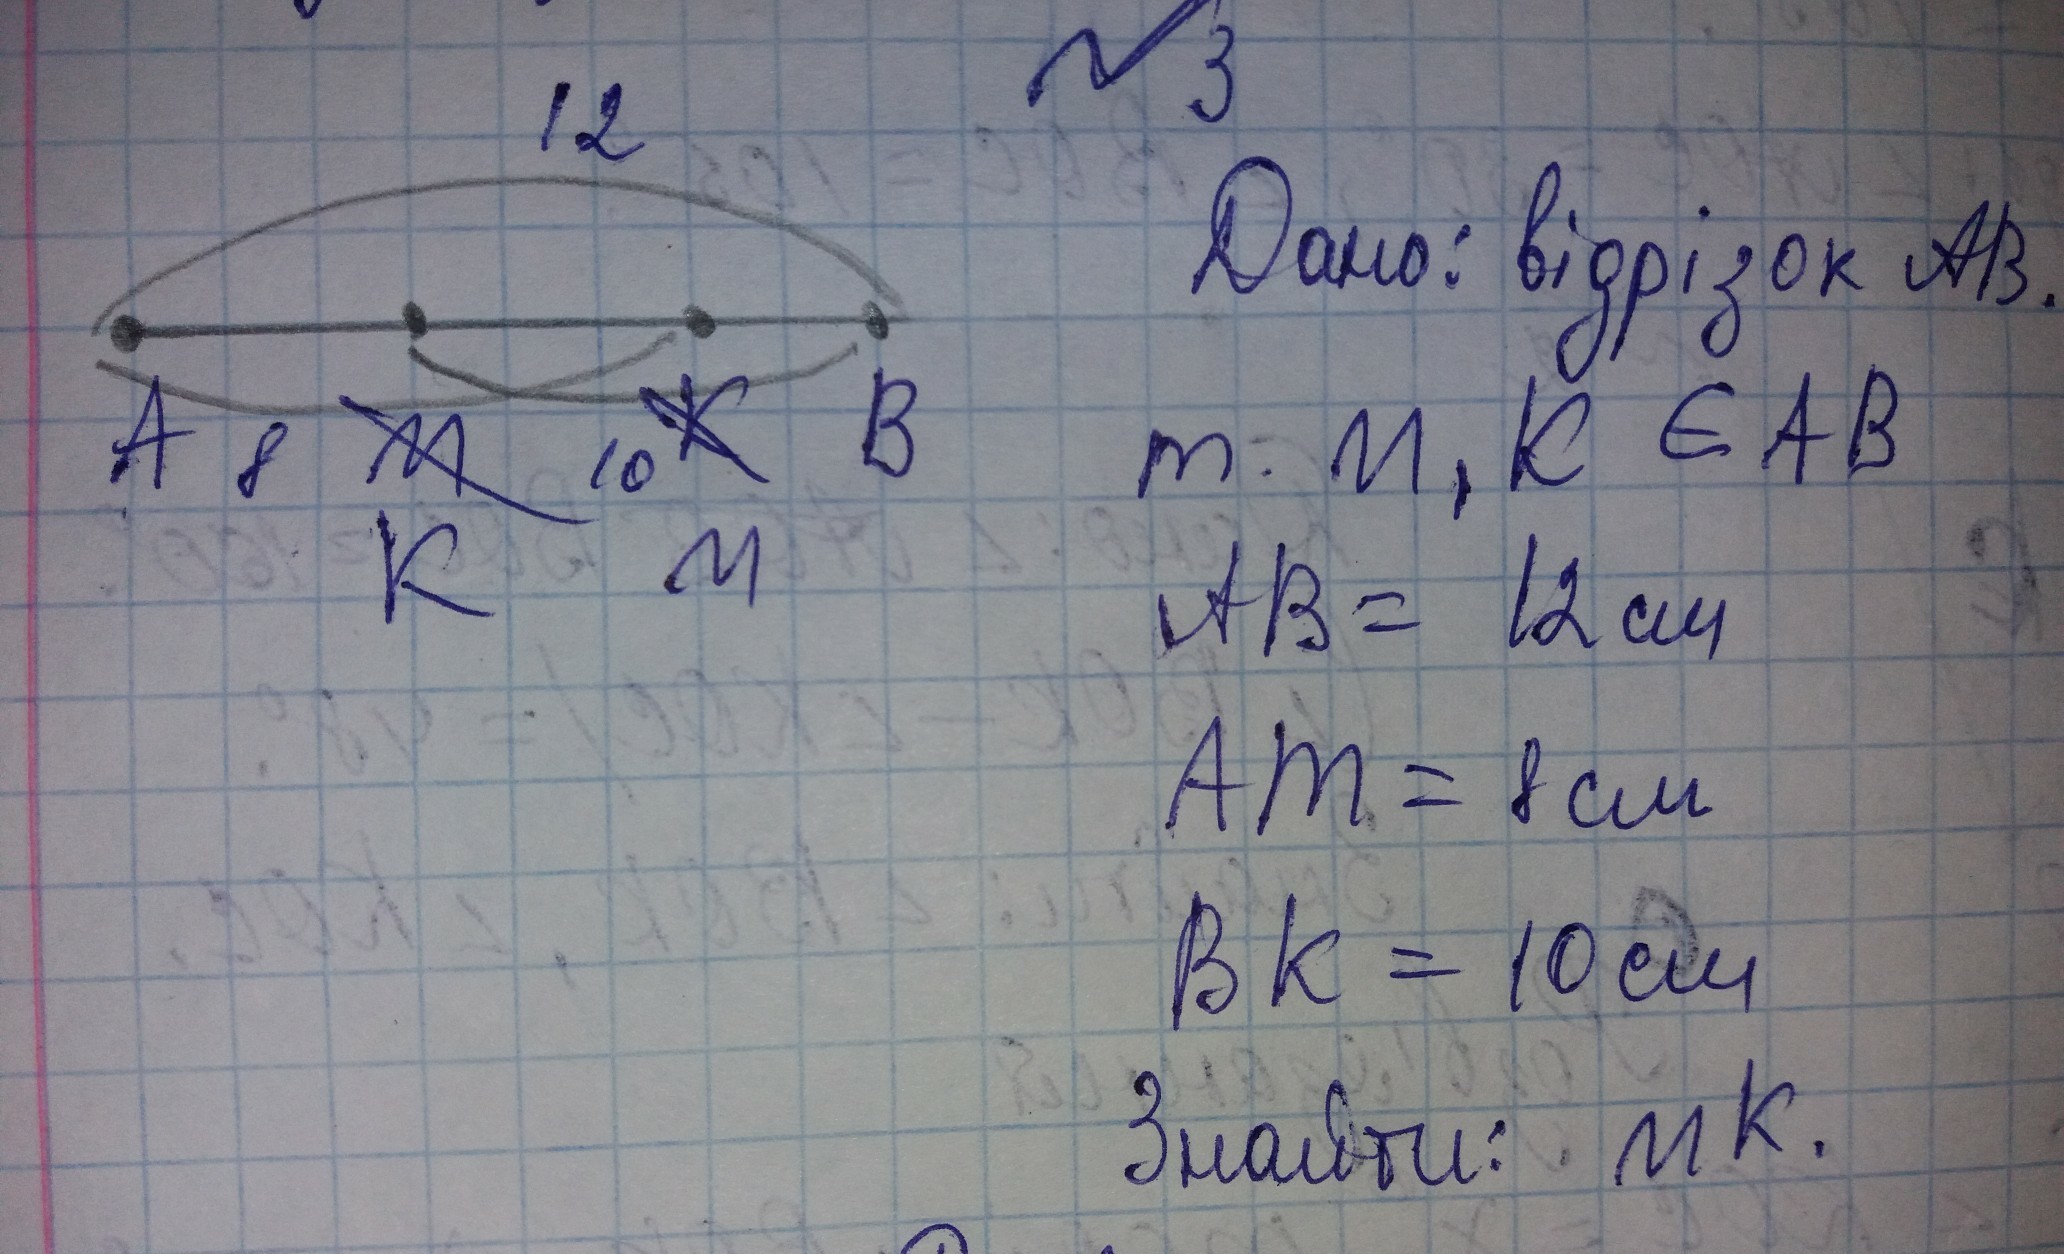 №3
12
Дано: відрізок AB.
A 8 M 10 K B
K M
т. M, K ∈ AB
AB = 12 см
AM = 8 см
BK = 10 см
Знайти: MK.